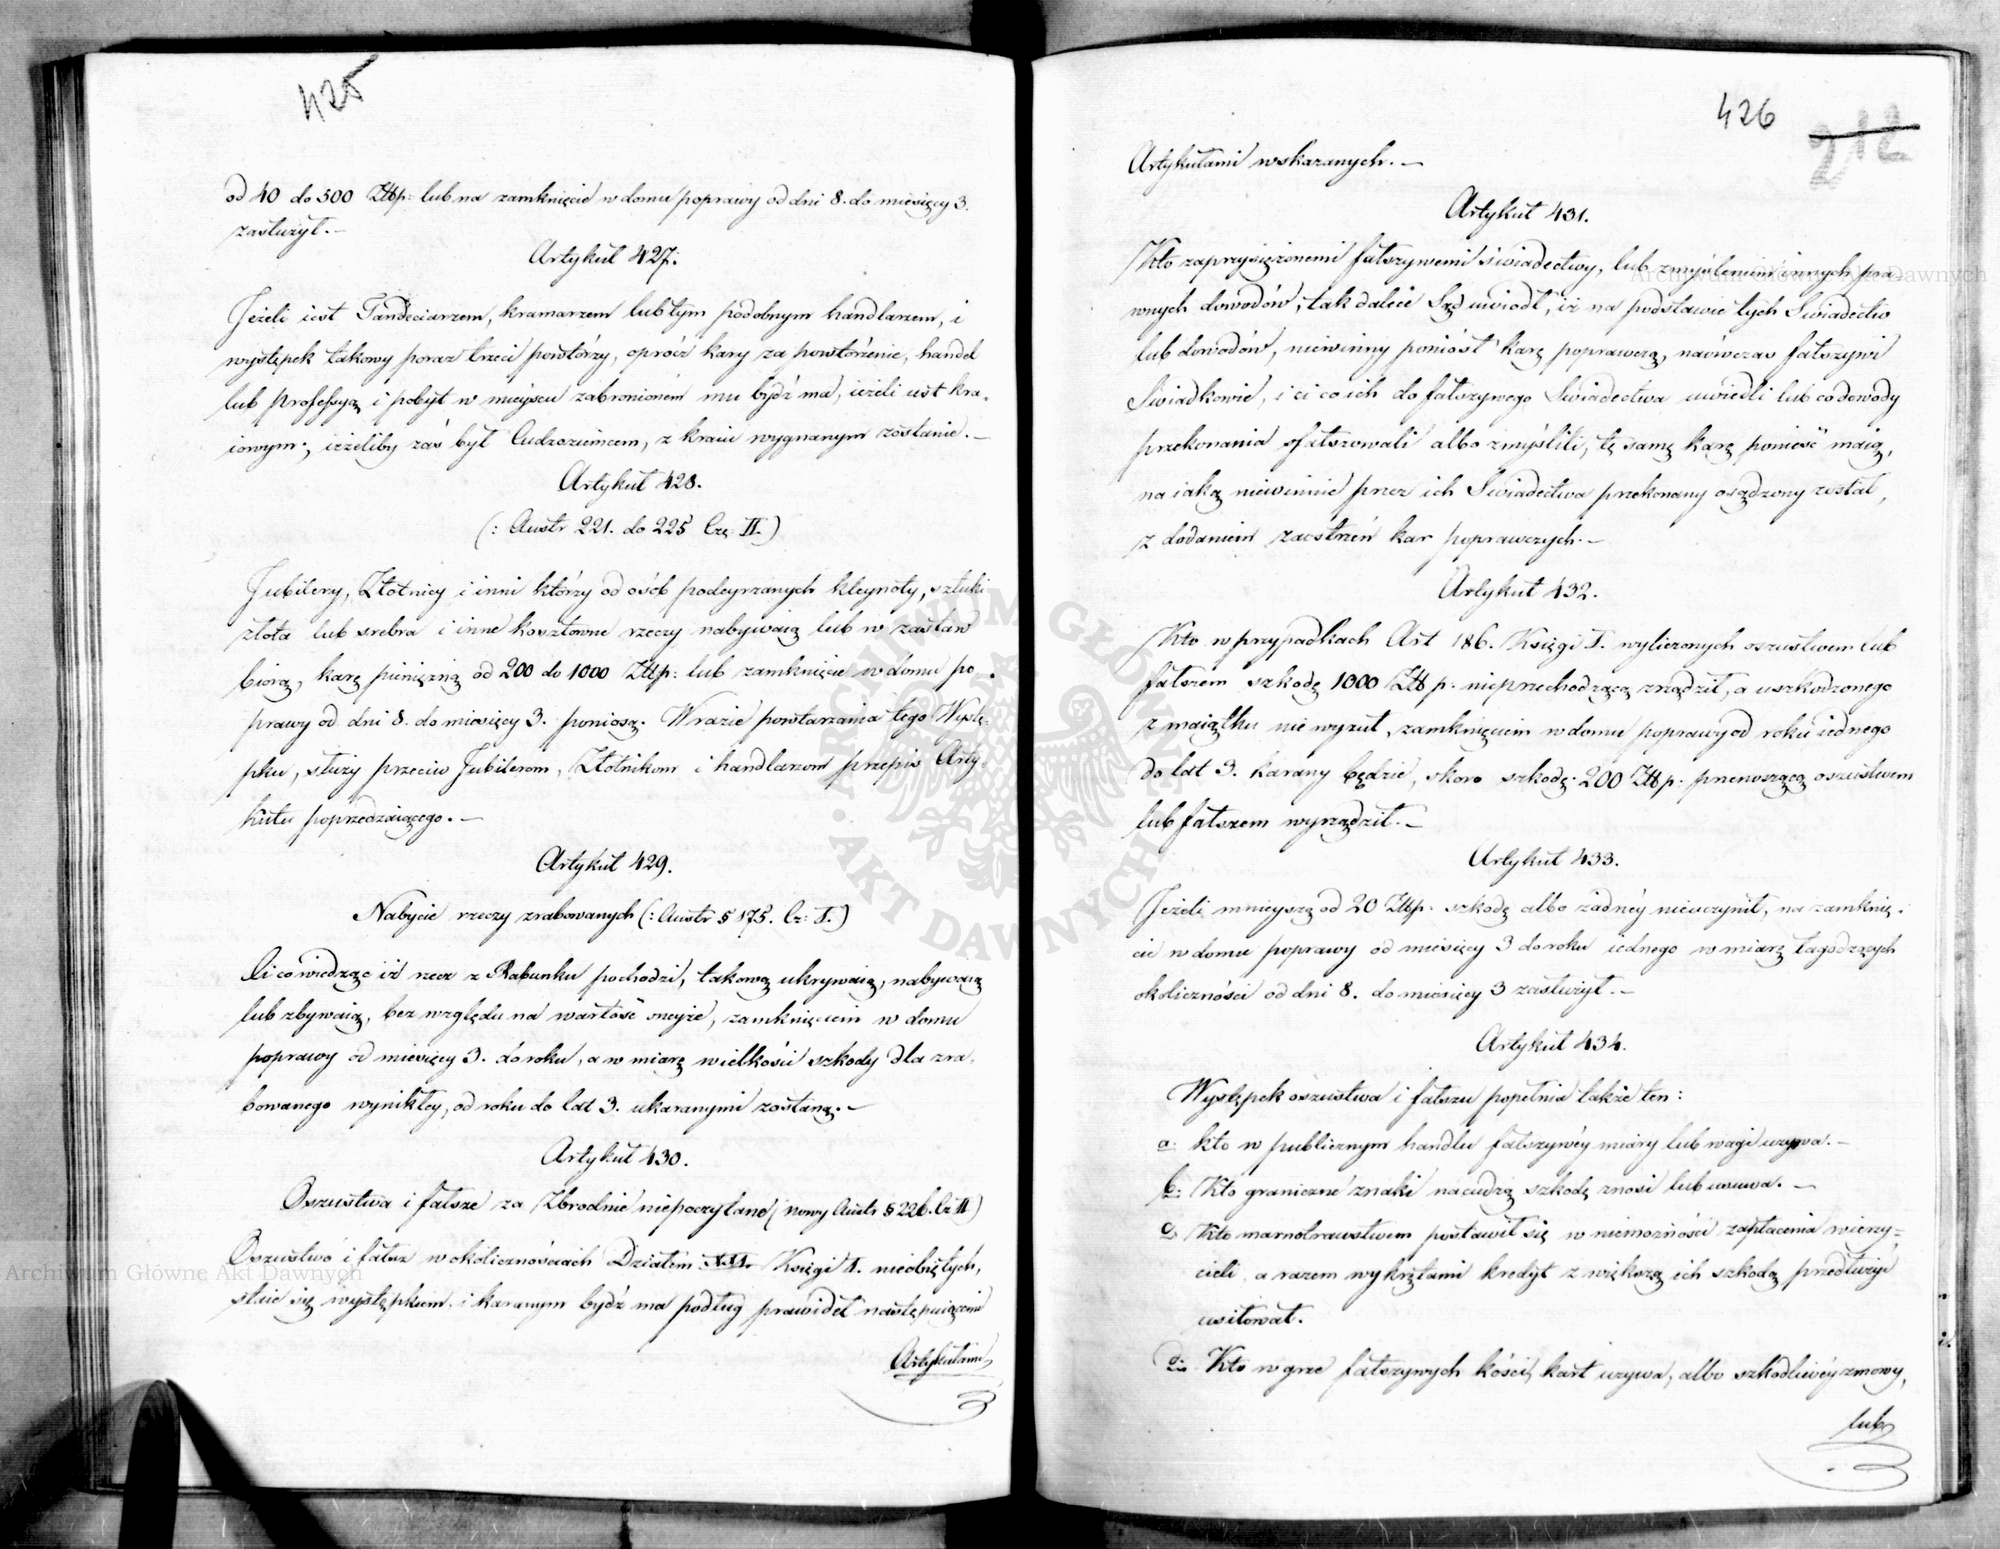 425
od 40 do 500 Złłp: lub na zamknięcie w domu poprawy od dni 8. do miesięcy 3.
zasłużył.—
Artykuł 427.
Jeżeli iest Tandeciarzem, kramarzem lub tym podobnym handlarzem, i
występek takowy poraz trzeci powtórzy, oprócz kary za powtórzenie, handel
lub professyą i pobyt w mieyscu zabronionem mu bydź ma, ieżeli iest kra-
iowym; ieżeliby zaś był Cudzoziemcem, z kraiu wygnanym zostanie.—
Artykuł 428.
(: Austr 221. do 225 Czę: II.)
Jubilery, Złotnicy i inni którzy od osób podeyrzanych kleynoty, sztuki
złota lub srebra i inne kosztowne rzeczy nabywaią lub w zastaw
biorą, karę pieniężną od 200 do 1000 Złłp: lub zamknięcie w domu po-
prawy od dni 8. do miesięcy 3. poniosą. W razie powtarzania tego Wystę-
pku, służy przeciw Jubilerom, Złotnikom i handlarzom przepis Arty-
kułu poprzedzaiącego.—
Artykuł 429.
Nabycie rzeczy zrabowanych (: Austr § 175. Cz: I.)
Ci co wiedząc iż rzecz z Rabunku pochodzi, takową ukrywaią, nabywaią
lub zbywaią, bez względu na wartość oneyże, zamknięciem w domu
poprawy od miesięcy 3. do roku, a w miarę wielkości szkody dla zra-
bowanego wynikłey, od roku do lat 3. ukaranymi zostaną.—
Artykuł 430.
Oszustwa i fałsze za Zbrodnie niepoczytane (nowy Austr § 226. Cz II)
Oszustwo i fałsz w okolicznościach Działem Księgi I. nieobiętych,
staie się występkiem, i karanym bydź ma podług prawideł następuiącemi
Artykułami
426
212
Artykułami wskazanych.—
Artykuł 431.
Kto zaprzysiężonemi fałszywemi świadectwy, lub zmyśleniem innych pra-
wnych dowodów, tak dalece Sąd uwiódł, iż na podstawie tych Świadectw
lub dowodów, niewinny poniósł karę poprawczą, naówczas fałszywi
Świadkowie, i ci co ich do fałszywego Świadectwa uwiedli lub co dowody
przekonania sfałszowali albo zmyślili, tę samę karę ponieść maią,
na iaką niewinnie przez ich Świadectwa przekonany osądzony został,
z dodaniem zaostrzeń kar poprawczych.—
Artykuł 432.
Kto w przypadkach Art 186. Księgi I. wyliczonych oszustwem lub
fałszem szkodę 1000 Złł p. nieprzechodzącą zrządził, a uszkodzonego
z maiątku nie wyzuł, zamknięciem w domu poprawy od roku iednego
do lat 3. karany będzie, skoro szkodę 200 Złł p. przenoszącą oszustwem
lub fałszem wyrządził.—
Artykuł 433.
Jeżeli mnieyszą od 20 Złłp. szkodę albo żadnéy nieuczynił, na zamknię-
cie w domu poprawy od miesięcy 3 do roku iednego w miarę łagodzących
okoliczności od dni 8. do miesięcy 3 zasłużył.—
Artykuł 434.
Występek oszustwa i fałszu popełnia także ten:
a: kto w publicznym handlu fałszywéy miary lub wagi używa.—
b: Kto graniczne znaki na cudzą szkodę znosi lub usuwa.—
c, Kto marnotrawstwem postawił się w niemożności zapłacenia wierzy-
cieli, a razem wykrętami kredyt z większą ich szkodą przedłużyć
usiłował.
d: Kto w grze fałszywych kości, kart używa, albo szkodliwéy zmowy,
lub
ARCHIWUM GŁÓWNE AKT DAWNYCH
Archiwum Główne Akt Dawnych
Archiwum Główne Akt Dawnych